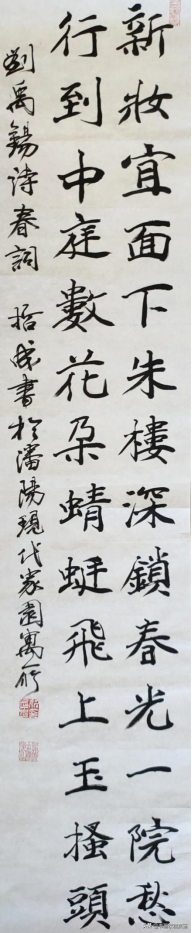 新妝宜面下朱樓深鎖春光一院愁
行到中庭數花朵蜻蜓飛上玉搔頭
劉禹錫詩春詞 拾成書於瀋陽現代家園寓所